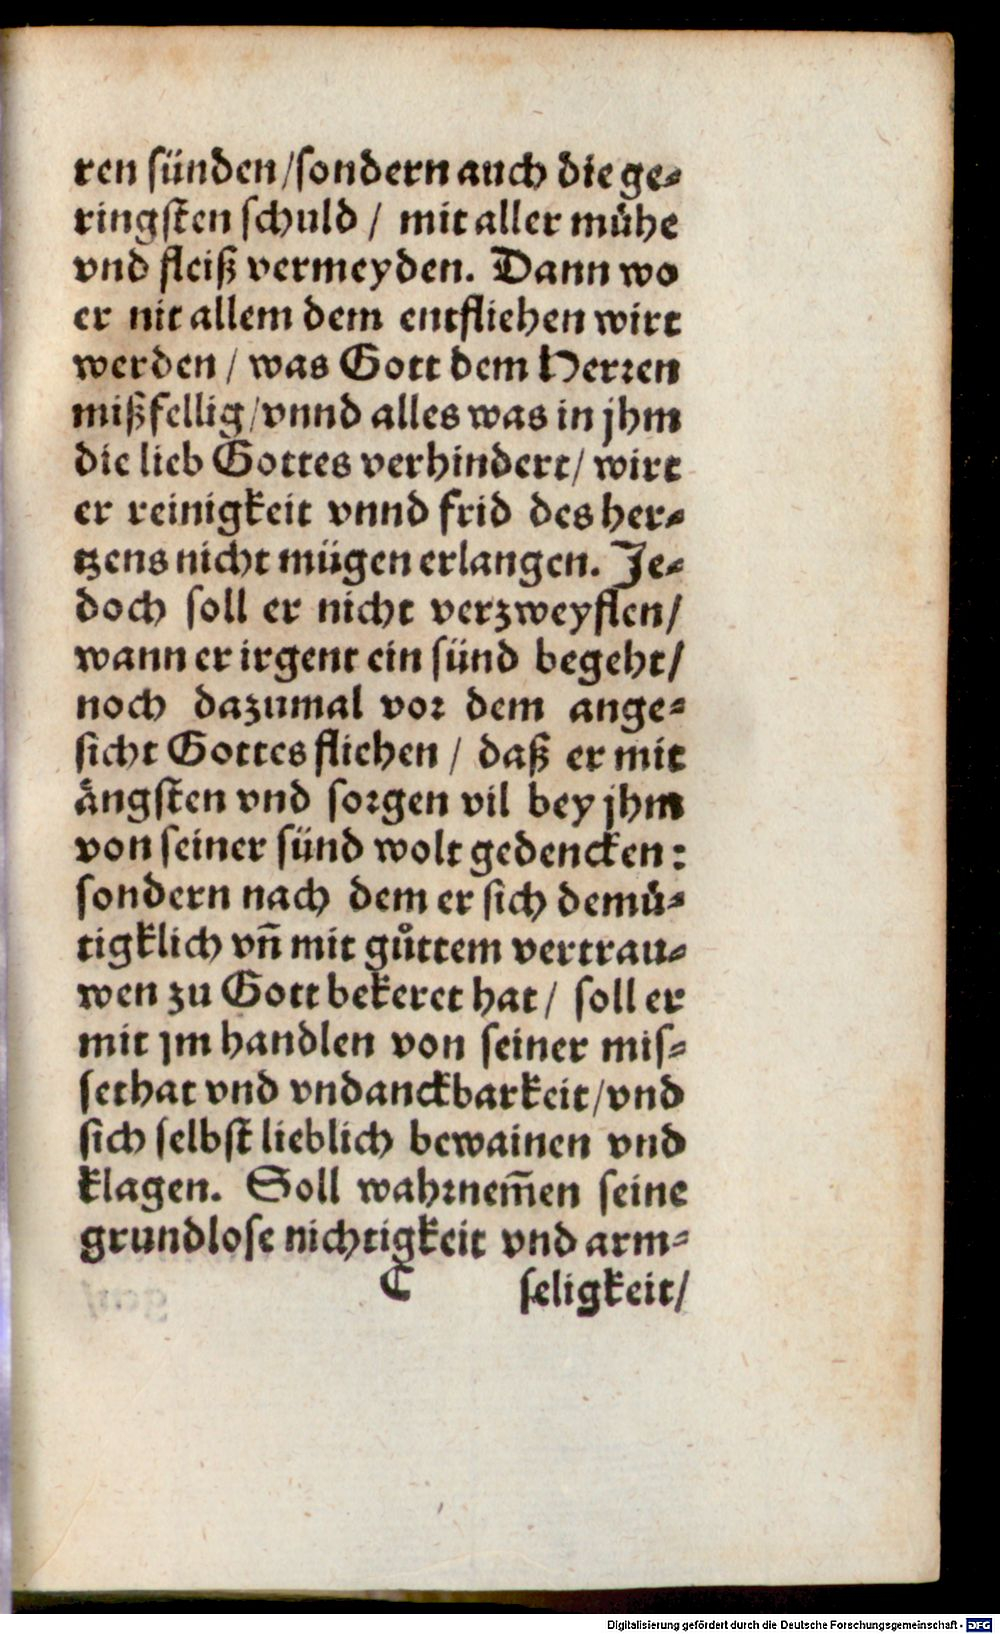 ren sünden/sondern auch die ge⸗
ringsten schuld / mit aller mühe
vnd fleiß vermeyden. Dann wo
er nit allem dem entfliehen wirt
werden / was Gott dem Herꝛen
mißfellig/vnnd alles was in jhm
die lieb Gottes verhindert/ wirt
er reinigkeit vnnd frid des her⸗
tzens nicht mügen erlangen. Je⸗
doch soll er nicht verzweyflen/
wann er irgent ein sünd begeht/
noch dazumal voꝛ dem ange⸗
sicht Gottes fliehen / daß er mit
ängsten vnd soꝛgen vil bey jhm
von seiner sünd wolt gedencken:
sondern nach dem er sich demuͤ⸗
tigklich vñ mit guͦttem vertrau⸗
wen zu Gott bekeret hat/ soll er
mit jm handlen von seiner mis⸗
sethat vnd vndanckbarkeit/vnd
sich selbst lieblich bewainen vnd
klagen. Soll wahꝛnem̃en seine
grundlose nichtigkeit vnd arm⸗
C seligkeit/
Digitalisierung gefördert durch die Deutsche Forschungsgemeinschaft - DFG